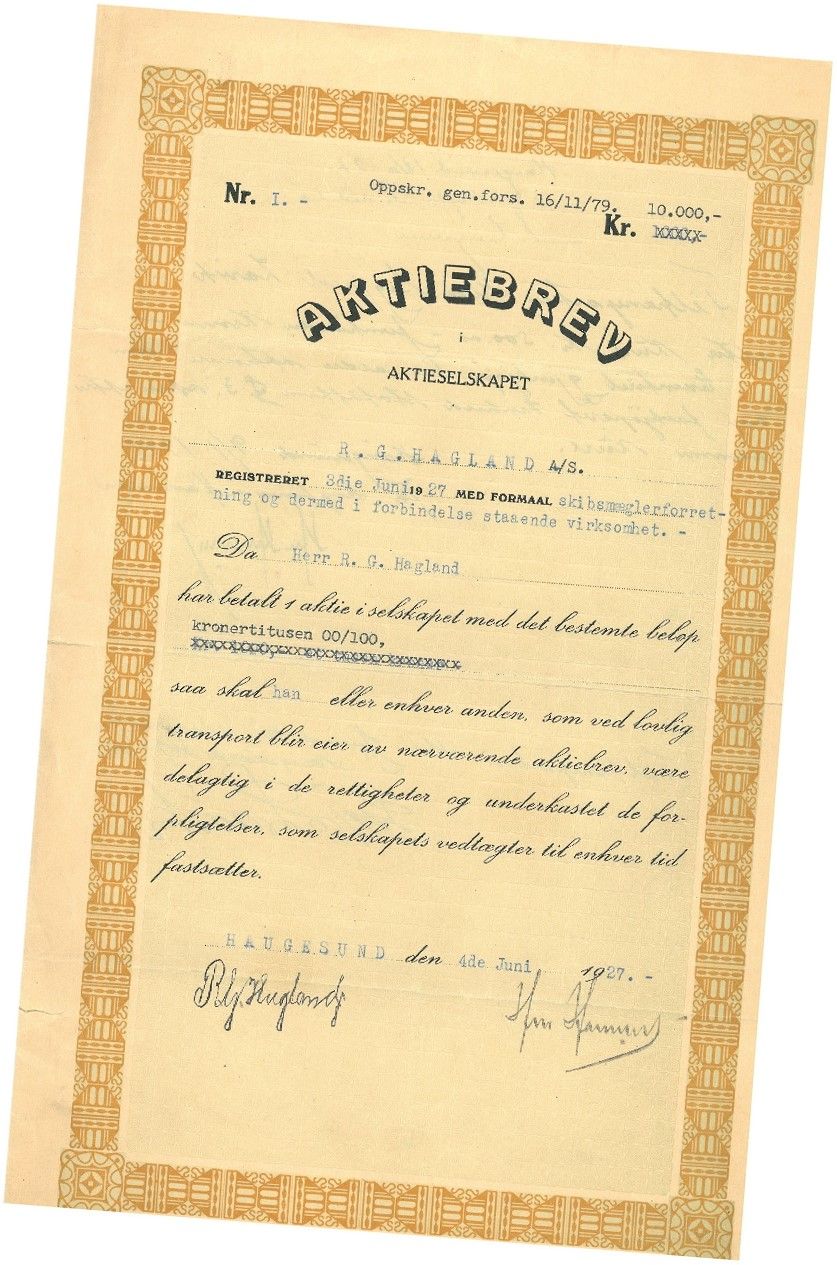 Oppskr. gen.fors. 16/11/79. 10.000,-
Nr. I. - Kr. XXXXX-
AKTIEBREV
i
AKTIESELSKAPET
R. G. HAGLAND A/S.
REGISTRERET 3die Juni 1927 MED FORMAAL skibsmæglerforret-
ning og dermed i forbindelse staaende virksomhet. -
Da Herr R. G. Hagland
har betalt 1 aktie i selskapet med det bestemte beløp
kronertitusen 00/100,
saa skal han eller enhver anden, som ved lovlig
transport blir eier av nærværende aktiebrev, være
delagtig i de rettigheter og underkastet de for-
pligtelser, som selskapets vedtægter til enhver tid
fastsætter.
HAUGESUND den 4de Juni 1927. -
R.G. Hagland